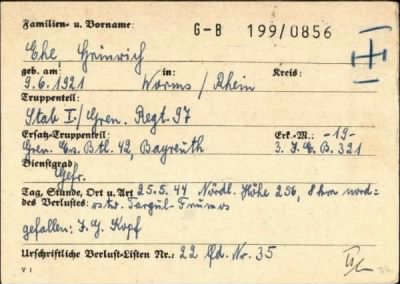 Familien- u. Vorname: G-B 199/0856
Ehl, Heinrich
geb. am: in: Kreis:
9.6.1921 Worms / Rhein
Truppenteil:
Stab I./Gren. Regt. 97
Ersatz-Truppenteil: Erk.-M.: -19-
Gren. Ers. Btl. 42, Bayreuth 3. J.E.B. 321
Dienstgrad
Gefr.
Tag, Stunde, Ort u. Art 25.5.44 Nördl. Höhe 256, 8 km nord=
des Verlustes: ostw. Targul-Frumos
gefallen: J.G. Kopf
Urschriftliche Verlust-Listen Nr.: 22 lfd. Nr. 35
V 1